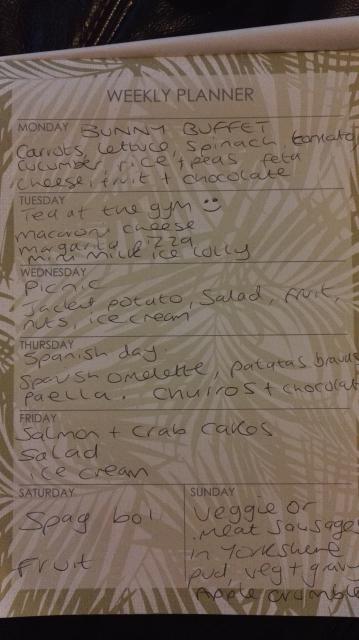 WEEKLY PLANNER
MONDAY BUNNY BUFFET
Carrots, lettuce, spinach, tomato
cucumber, rice + peas feta
cheese, fruit + chocolate
TUESDAY
Tea at the gym ☺
macaroni cheese
margarita pizza
mini milk ice lolly
WEDNESDAY
Picnic
Jacket potato, salad, fruit,
nuts, ice cream
THURSDAY
Spanish day.
Spanish omelette, patatas bravas
paella. Churros + chocolat
FRIDAY
Salmon + Crab cakes
Salad
ice cream
SATURDAY
Spag bol
Fruit
SUNDAY
Veggie or
meat sausages
in Yorkshire
pud, veg + gravy
Apple crumble